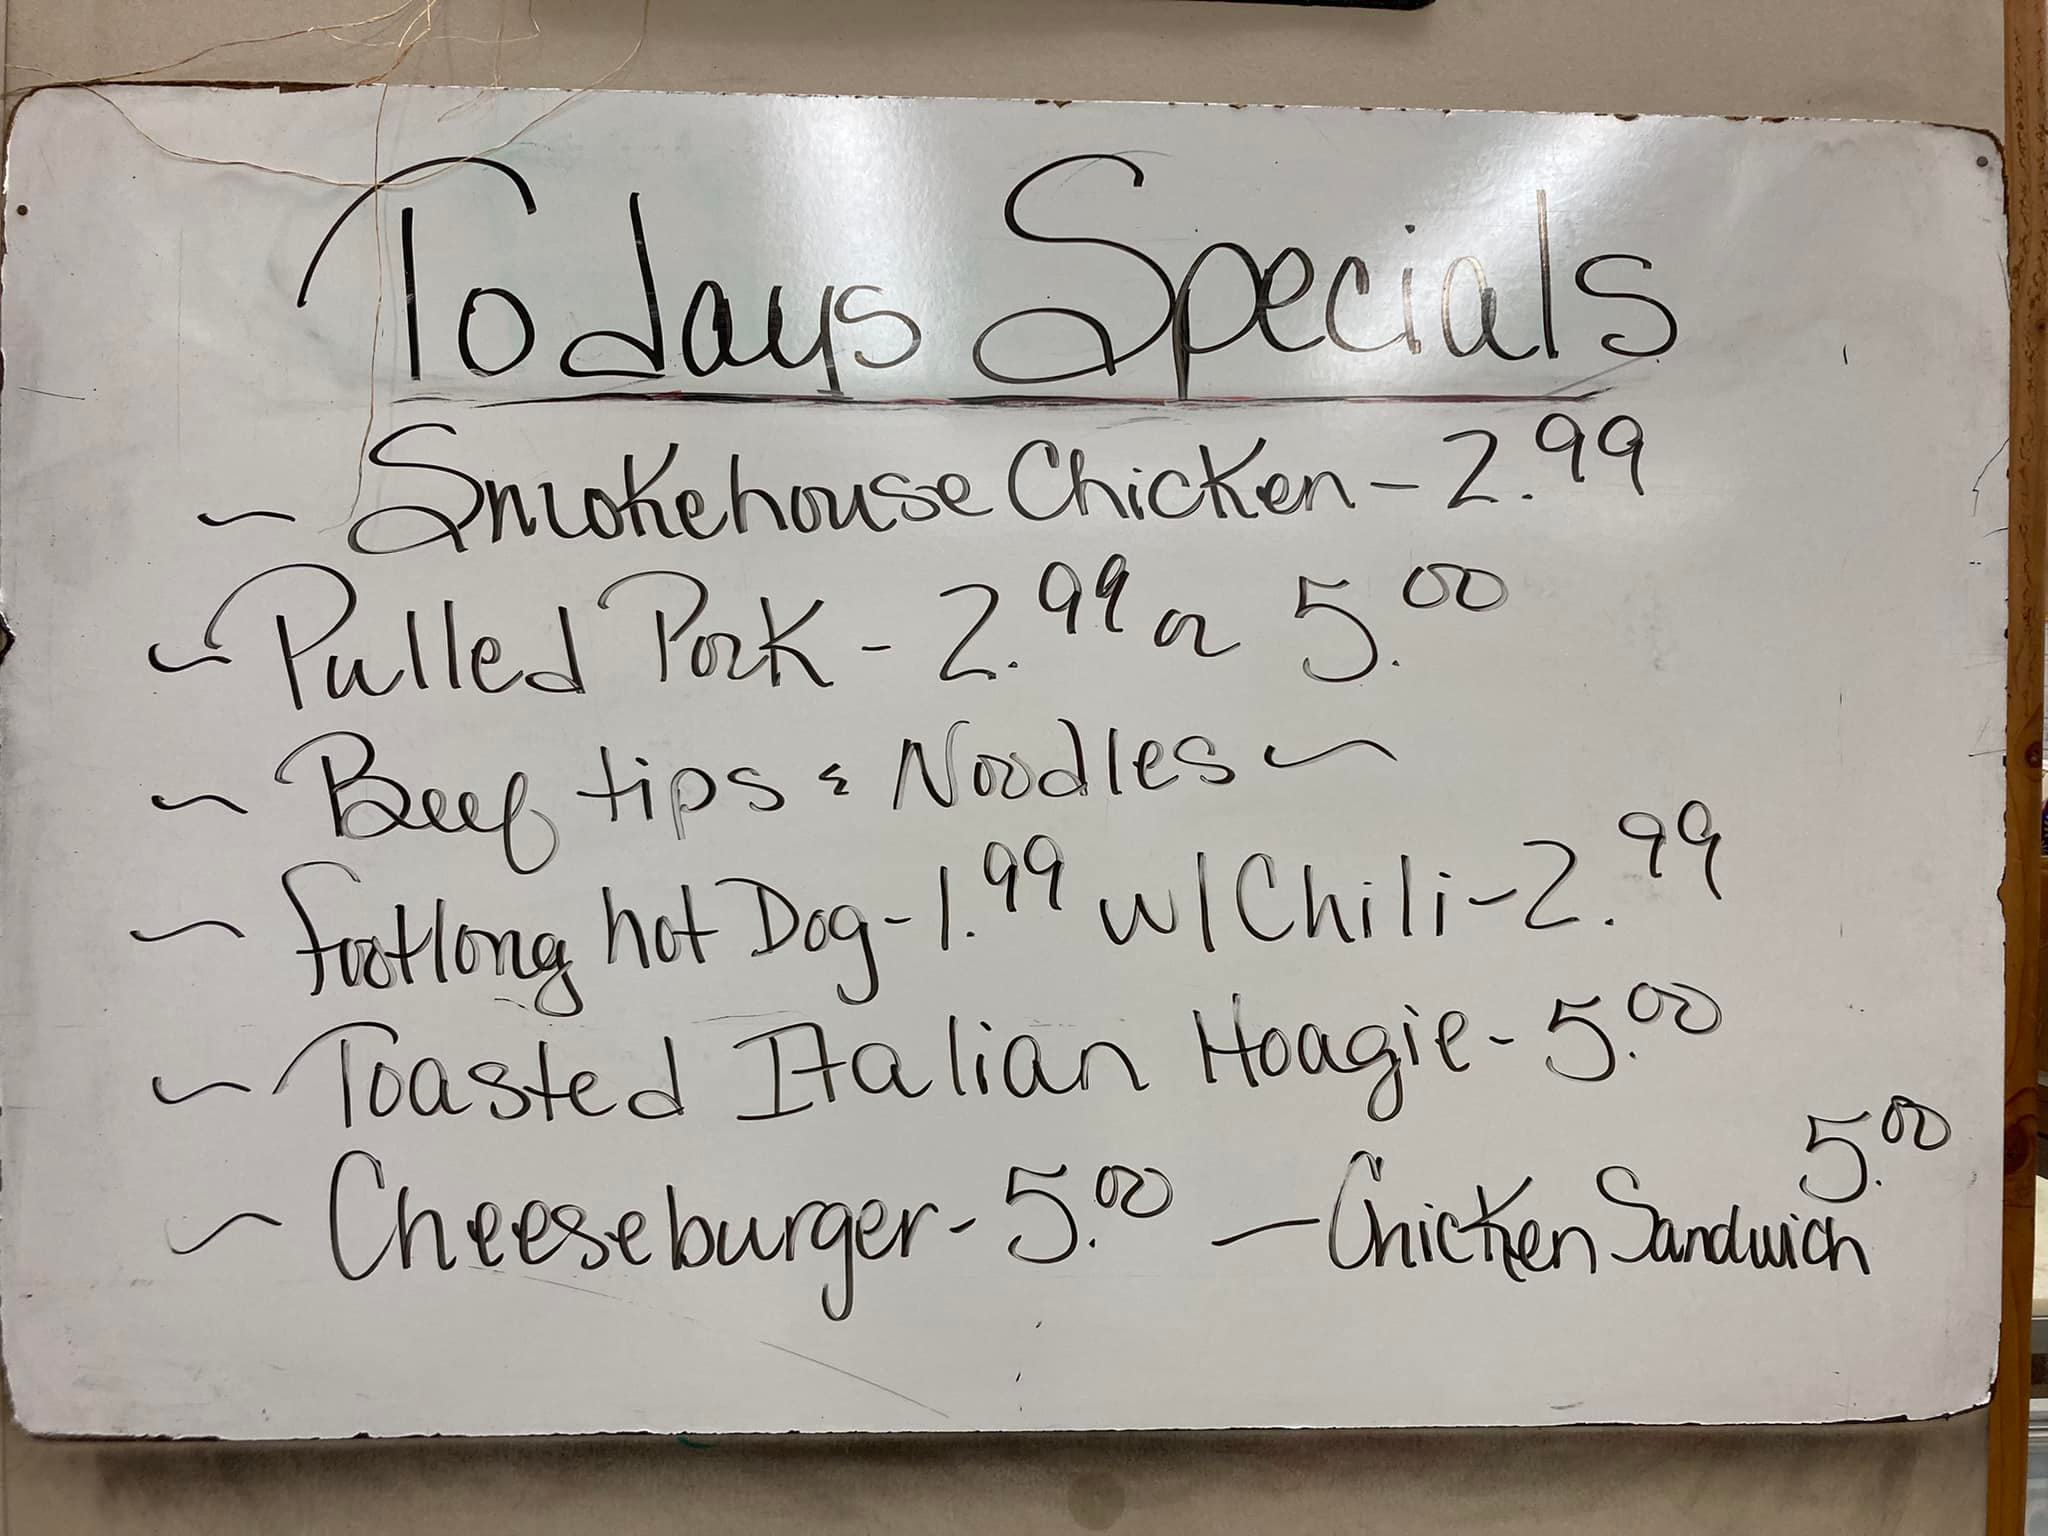 Todays Specials
~ Smokehouse Chicken - 2.99
~ Pulled Pork - 2.99 or 5.00
~ Beef tips & Noodles ~
~ footlong hot Dog - 1.99 w/ Chili - 2.99
~ Toasted Italian Hoagie - 5.00
~ Cheeseburger - 5.00 ~ Chicken Sandwich 5.00